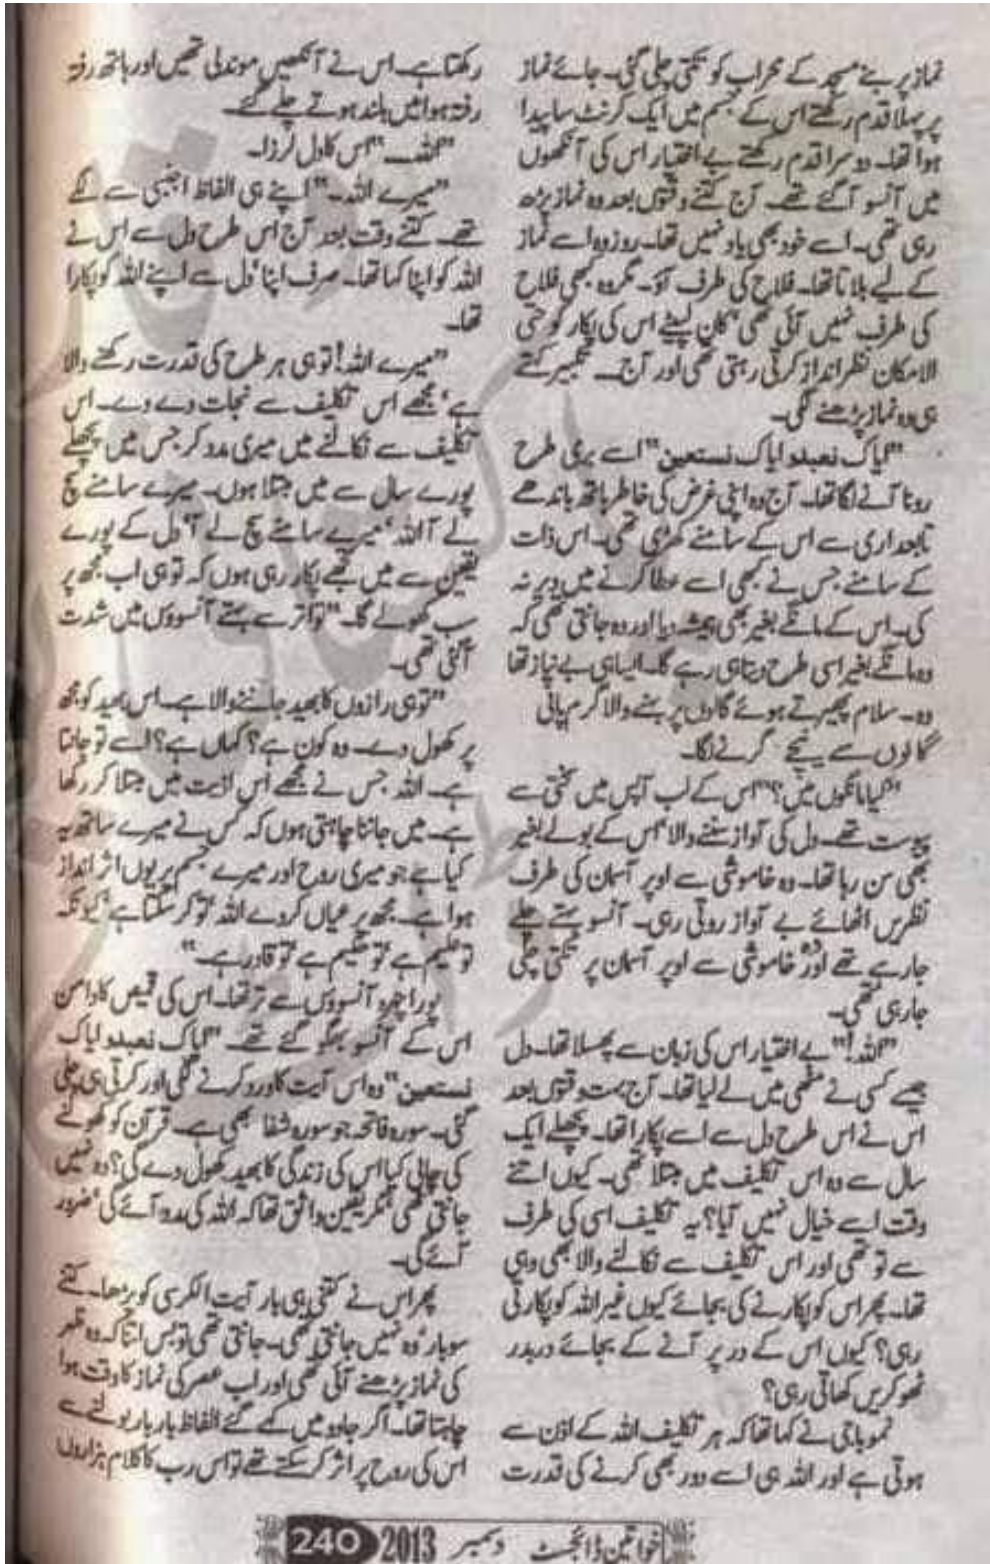 نماز پر بنے مسجد کے محراب کو تکتی چلی گئی۔ جائے نماز
پر پہلا قدم رکھتے اس کے جسم میں ایک کرنٹ سا پیدا
ہوا تھا۔ دوسرا قدم رکھتے بے اختیار اس کی آنکھوں
میں آنسو آ گئے تھے۔ آج کتنے وقتوں بعد وہ نماز پڑھ
رہی تھی۔ اسے خود بھی یاد نہیں تھا۔ روز وہ اسے نماز
کے لیے بلاتا تھا۔ فلاح کی طرف آؤ۔ مگر وہ کبھی فلاح
کی طرف نہیں آئی تھی‘ کان لپیٹے اس کی پکار کو حتی
الامکان نظر انداز کرتی رہتی تھی اور آج۔۔۔ تکبیر کہتے
ہی وہ نماز پڑھنے لگی۔
"ایاک نعبد و ایاک نستعین" اسے بری طرح
رونا آنے لگا تھا۔ آج وہ اپنی غرض کی خاطر ہاتھ باندھے
تابعداری سے اس کے سامنے کھڑی تھی۔ اس ذات
کے سامنے جس نے کبھی اسے عطا کرنے میں دیر نہ
کی۔ اس کے مانگے بغیر بھی ہمیشہ دیا اور وہ جانتی تھی کہ
وہ مانگے بغیر اسی طرح دیتا ہی رہے گا۔ ایسا ہی بے نیاز تھا
وہ۔ سلام پھیرتے ہوئے گالوں پر بہنے والا گرم پانی
گالوں سے نیچے گرنے لگا۔
"کیا مانگوں میں؟" اس کے لب آپس میں سختی سے
پیوست تھے۔ دل کی آواز سننے والا‘ اس کے بولے بغیر
بھی سن رہا تھا۔ وہ خاموشی سے اوپر آسمان کی طرف
نظریں اٹھائے بے آواز روتی رہی۔ آنسو بہتے چلے
جا رہے تھے اور وہ خاموشی سے اوپر آسمان پر تکتی چلی
جا رہی تھی۔
"اللہ!" بے اختیار اس کی زبان سے پھسلا تھا۔ دل
جیسے کسی نے مٹھی میں لے لیا تھا۔ آج بہت وقتوں بعد
اس نے اس طرح دل سے اسے پکارا تھا۔ پچھلے ایک
سال سے وہ اس تکلیف میں مبتلا تھی۔ کیوں اتنے
وقت اسے خیال نہیں آیا؟ یہ تکلیف اسی کی طرف
سے تو تھی اور اس تکلیف سے نکالنے والا بھی وہی
تھا۔ پھر اس کو پکارنے کی بجائے کیوں غیر اللہ کو پکارتی
رہی؟ کیوں اس کے در پر آنے کے بجائے در بدر
ٹھوکریں کھاتی رہی؟
نمو باجی نے کہا تھا کہ ہر تکلیف اللہ کے اذن سے
ہوتی ہے اور اللہ ہی اسے دور بھی کرنے کی قدرت
رکھتا ہے۔ اس نے آنکھیں موند لی تھیں اور ہاتھ رفتہ
رفتہ ہوا میں بلند ہوتے چلے گئے۔
"اللہ۔۔۔" اس کا دل لرزا۔
"میرے اللہ۔" اپنے ہی الفاظ اجنبی سے لگے
تھے۔ کتنے وقت بعد آج اس طرح دل سے اس نے
اللہ کو اپنا کہا تھا۔ صرف اپنا‘ دل سے اپنے اللہ کو پکارا
تھا۔
"میرے اللہ! تو ہی ہر طرح کی قدرت رکھنے والا
ہے‘ مجھے اس تکلیف سے نجات دے دے۔ اس
تکلیف سے نکالنے میں میری مدد کر جس میں پچھلے
پورے سال سے میں مبتلا ہوں۔ میرے سامنے سچ
لے آ اللہ‘ میرے سامنے سچ لے آ‘ دل کے پورے
یقین سے میں تجھے پکار رہی ہوں کہ تو ہی اب مجھ پر
سب کھولے گا۔" تواتر سے بہتے آنسوؤں میں شدت
آ گئی تھی۔
"تو ہی رازوں کا بھید جاننے والا ہے۔ اس بھید کو مجھ
پر کھول دے۔ وہ کون ہے؟ کہاں ہے؟ اسے تو جانتا
ہے۔ اللہ جس نے مجھے اس اذیت میں مبتلا کر رکھا
ہے۔ میں جاننا چاہتی ہوں کہ کس نے میرے ساتھ یہ
کیا ہے جو میری روح اور میرے جسم پر یوں اثر انداز
ہوا ہے۔ مجھ پر عیاں کر دے اللہ‘ تو کر سکتا ہے‘ کیونکہ
تو علیم ہے‘ تو حکیم ہے‘ تو قادر ہے۔"
پورا چہرہ آنسوؤں سے تر تھا۔ اس کی قمیص کا دامن
اس کے آنسو بھگو گئے تھے۔ "ایاک نعبد و ایاک
نستعین" وہ اس آیت کا ورد کرنے لگی اور کرتی ہی چلی
گئی۔ سورہ فاتحہ جو سورہ شفا بھی ہے۔ قرآن کو کھولنے
کی چابی کیا اس کی زندگی کا بھید کھول دے گی؟ وہ نہیں
جانتی تھی مگر یقین واثق تھا کہ اللہ کی مدد آئے گی‘ ضرور
آئے گی۔
پھر اس نے کتنی ہی بار آیت الکرسی کو پڑھا۔ کتنے
سو بار‘ وہ نہیں جانتی تھی۔ جانتی تھی تو بس اتنا کہ وہ ظہر
کی نماز پڑھنے آئی تھی اور اب عصر کی نماز کا وقت ہوا
چاہتا تھا۔ اگر جادو میں کہے گئے الفاظ بار بار بولنے سے
اس کی روح پر اثر کر سکتے تھے تو اس رب کا کلام ہزاروں
خواتین ڈائجسٹ دسمبر 2013 240